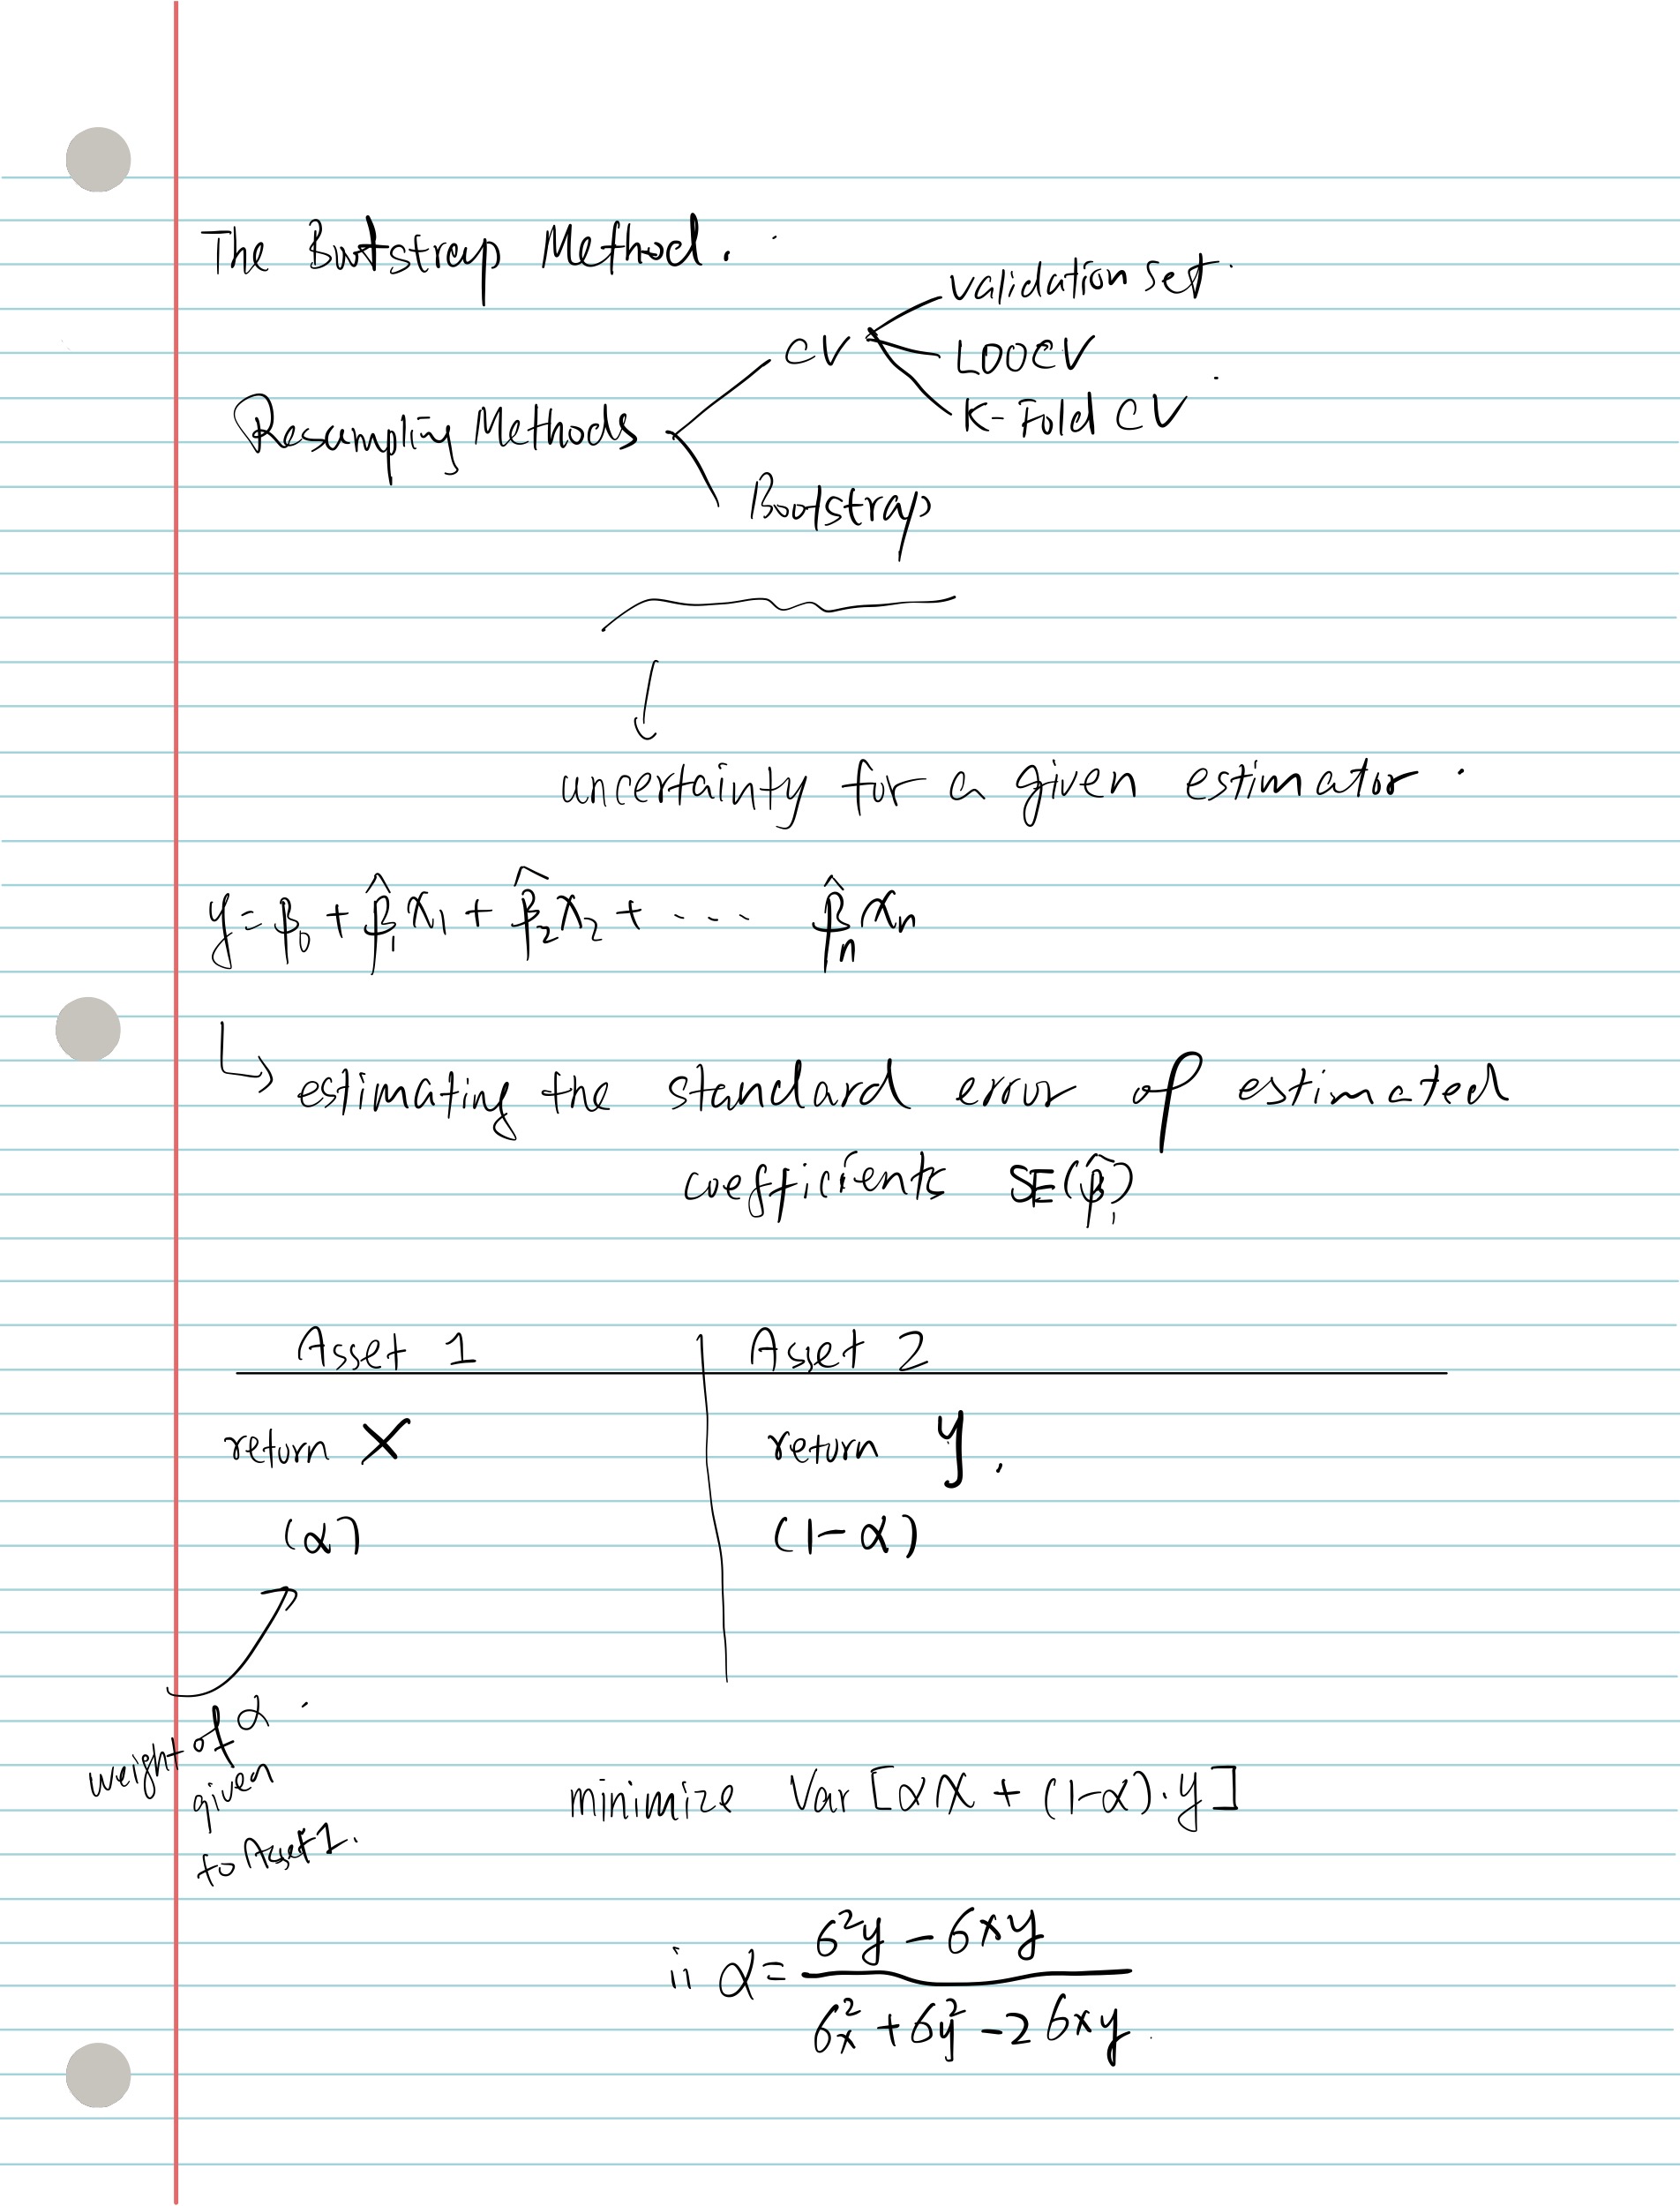 The Bootstrap Method.
Validation set.
CV
LOOCV
K-Fold CV
Resampling Methods
Bootstrap
uncertainty for a given estimator.
y = β₀ + β̂₁x₁ + β̂₂x₂ + ..... β̂ₙxₙ
↳ estimating the standard error of estimated
coefficients SE(β̂₁)
Asset 1 Asset 2
return X return y.
(α) (1-α)
weight of α.
given
to Asset 1.
minimize Var [αX + (1-α).y]
ii α = 6²y - 6xy
6²x + 6²y - 2 6xy